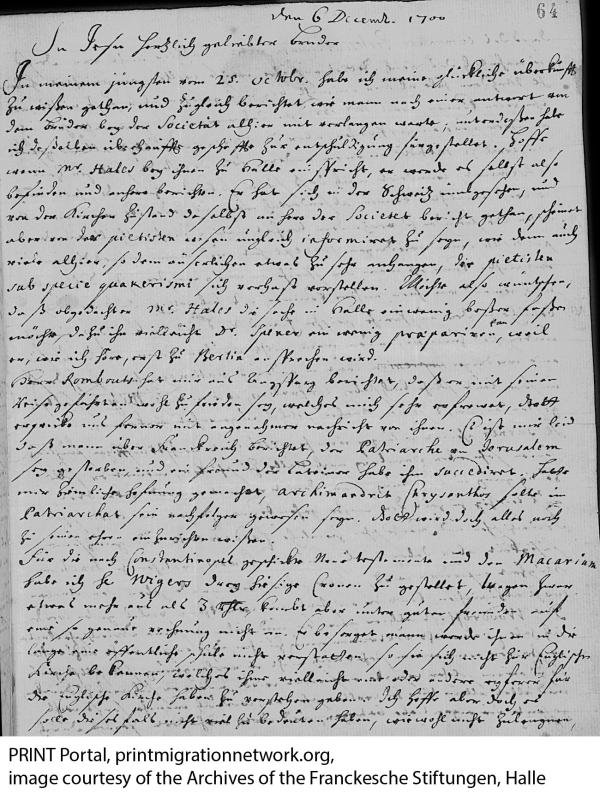 den 6 Decembr. 1700
64
In Jesu hertzlich geliebter bruder
In meinem jüngsten vom 25. Octobr. habe ich meine glückliche überkunfft
zu wißen gethan, und zugleich berichtet wie mann noch einer antwort von
dem bruder bey der Societät alhier mit verlangen warte, unterdeßen habe
ich deßelben überhäuffte geschäffte zur entschuldigung fürgestellet. Hoffe
wenn Mr. Hales bey ihnen zu Halle einspricht, er werde es selbst also
befinden und anhero berichten. Er hat sich in der Schweitz umbgesehen, und
von der Kirchen zustand daselbst anhero der Societet bericht gethan, scheinet
aber von der pietisten wesen ungleich informiret zu seyn, wie dann auch
viele alhier, so dem äuserlichen etwas zu sehr anhangen, die pietisten
sub specie quakerismi sich verhast vorstellen. Möchte also wünschen,
daß obgedachter Mr. Hales die sache in Halle ein wenig beßer faßen
möchte, dazu ihn vielleicht Dr. Spener ein wenig praepariren kan, weil
er, wie ich höre, erst zu Berlin einsprechen wird.
Herr Rombouts hat mir aus berichtet, daß er mit seinen
Reisegefährten wohl zu frieden sey, welches mich sehr erfrewet, Gott
erquicke uns ferner mit angenehmer nachricht von ihnen. Es ist mir leid
daß mann über Franckreich berichtet, der Patriarche von Jerusalem
sey gestorben, und ein freund der Lateiner habe ihm succediret. Hatte
mir heimliche hofnung gemachet, Archimandrit Chrysanthos solte im
Patriarchat sein nachfolger gewesen seyn. Gott wird doch alles noch
zu seinen ehren einzurichten wißen.
Für die nach Constantinopel geschickte Neue testamente und den Macarium
habe ich H. Wigers drey hiesige Cronen zu gestellet, tragen zwar
etwas mehr aus als 3 Rthlr, kombt aber unter guten freunden auf
eine so genaue rechnung nicht an. Er besorget, mann werde ihm in die
länge eine öffentliche schule nicht verstatten, so sie sich nicht zur Englischen
Kirche bekennen, welches ihm vielleicht ein oder andere für
die englische Kirche haben zu verstehen geben. Ich hoffe aber doch es
solle dieses fals nicht viel zu bedeuten haben, wiewohl nicht zu leugnen,
PRINT Portal, printmigrationnetwork.org,
image courtesy of the Archives of the Franckesche Stiftungen, Halle